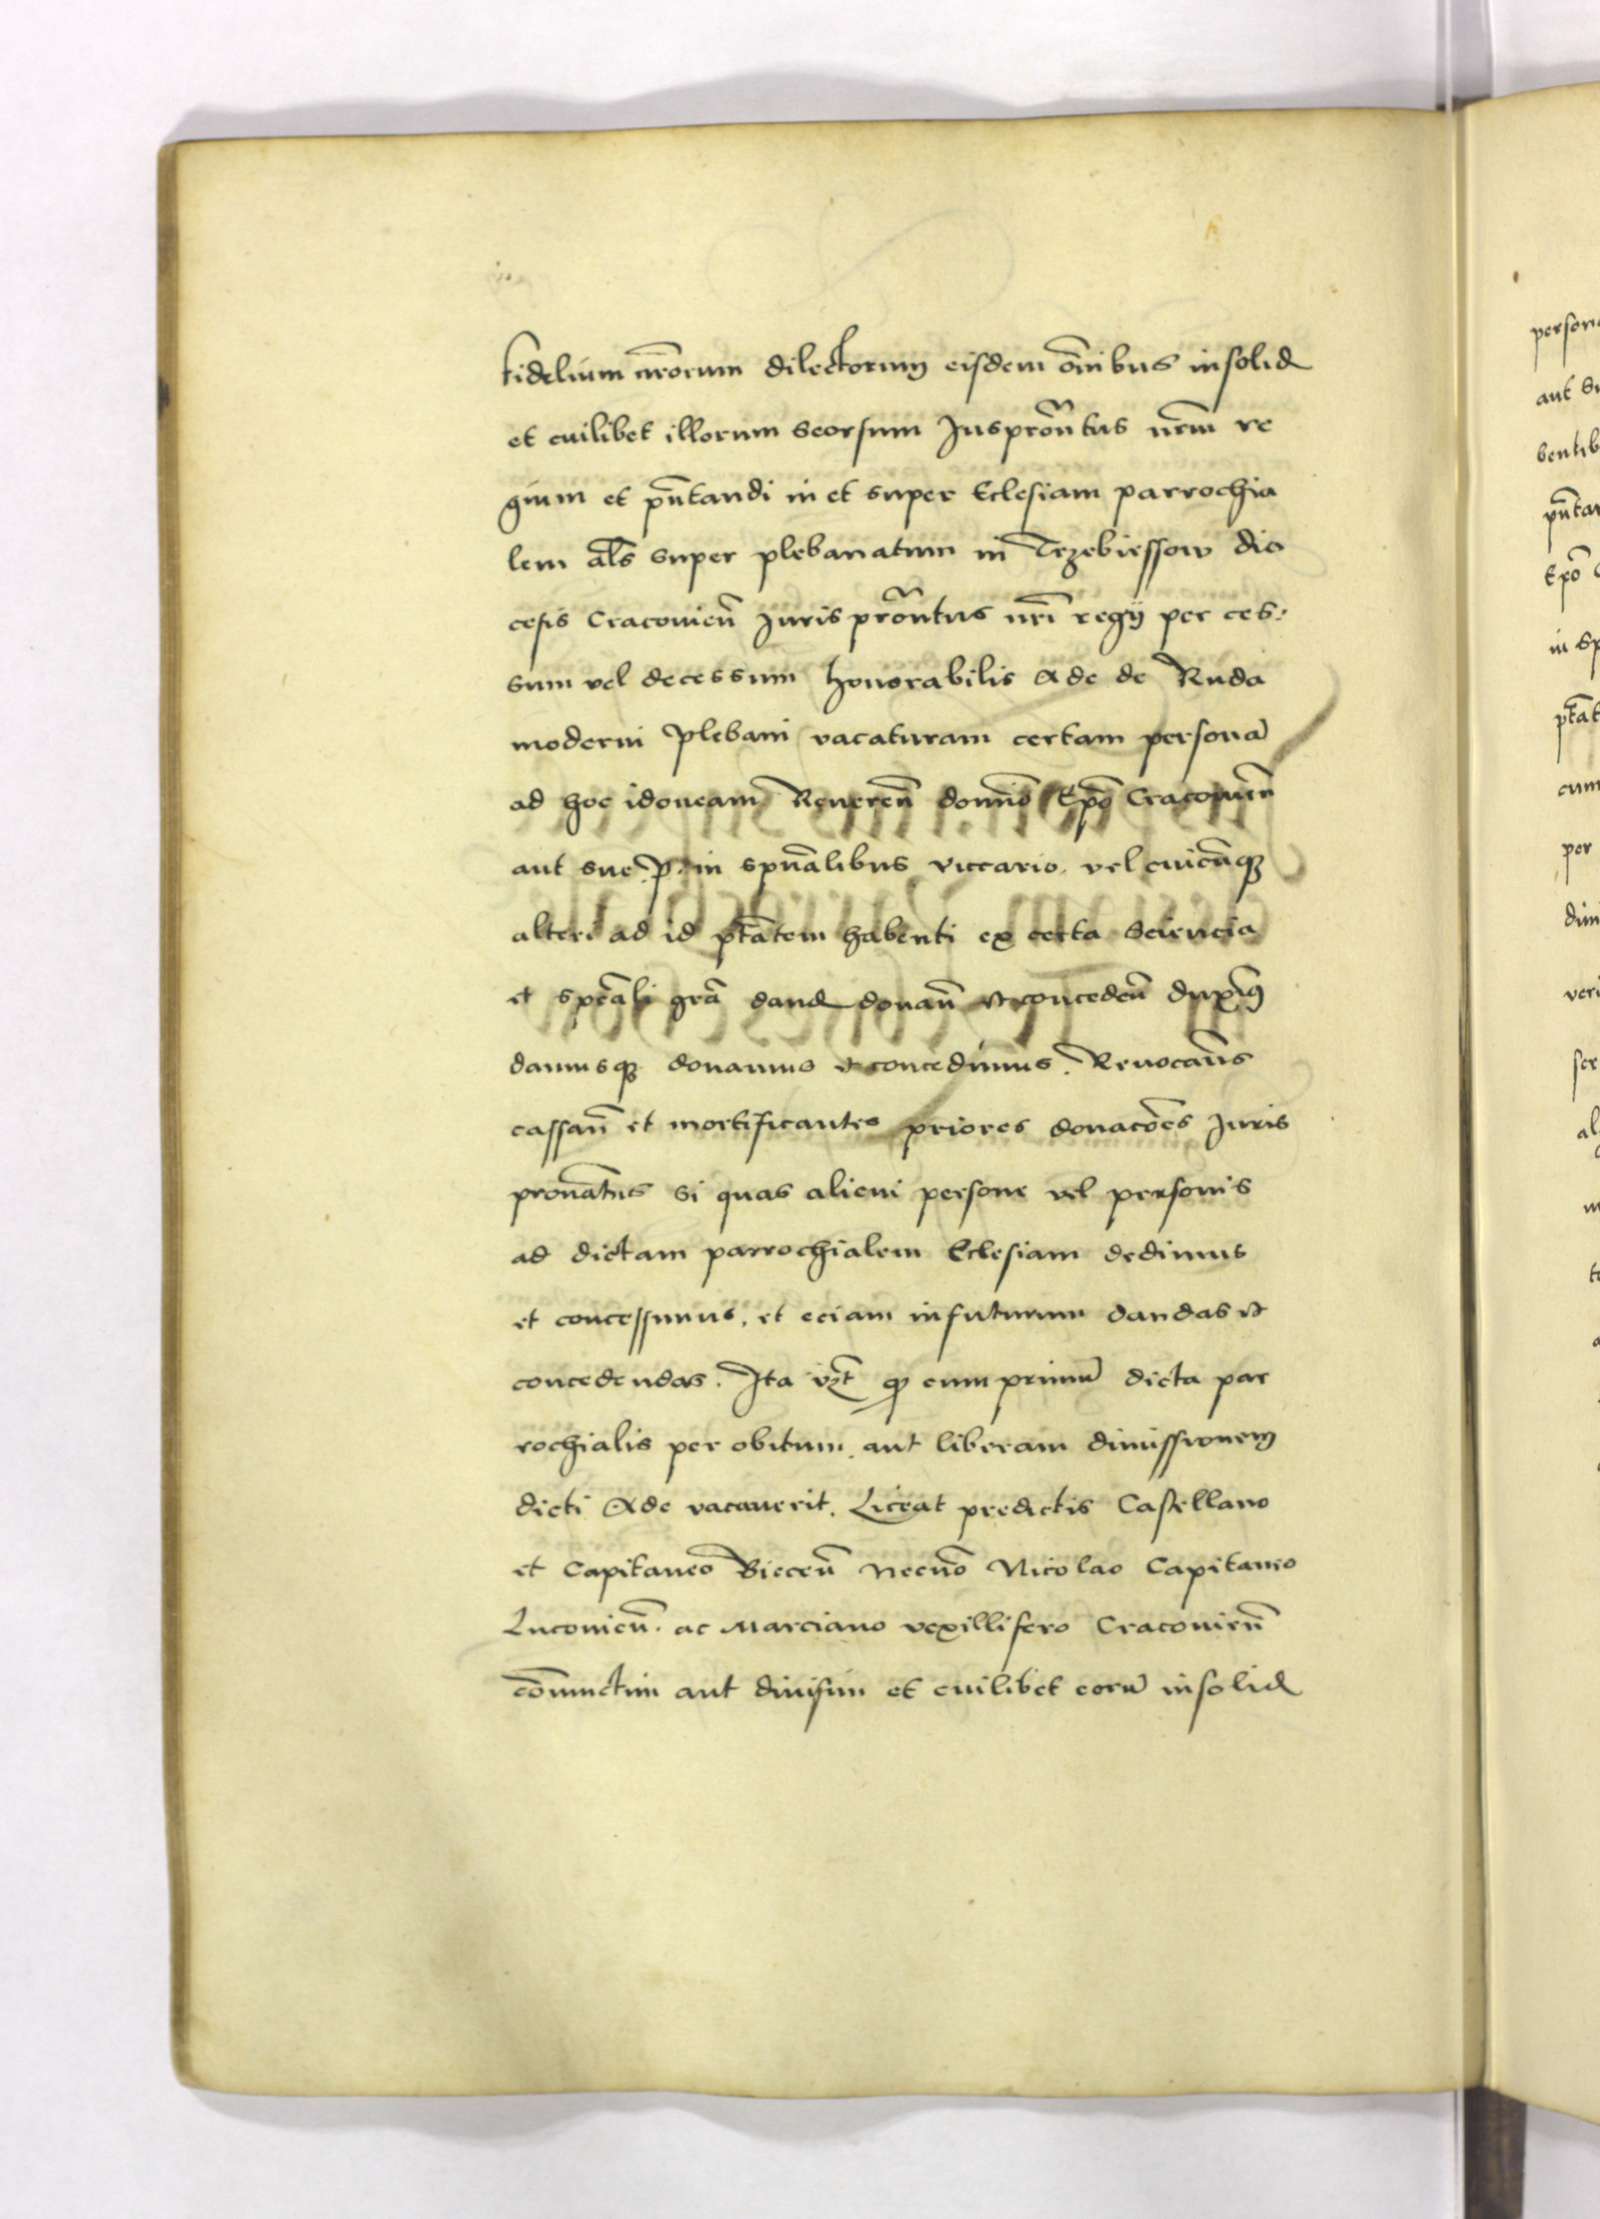 fidelium nr̄orum dilectorum eisdem om̄ibus insolid
et cuilibet illorum seorsum Juspron̄tus nrm̄ re
gium et pn̄tandi in et super Eclesiam parrochia
lem al̄s super plebanatum in Trzebiessow dio
cesis Cracouien̄ Juris pron̄tus nrī regij per ces:
sum vel decessum honorabilis Ade de Ruda
moderni plebani vacaturam certam personā
ad hoc idoneam Reueren̄ domīo Ep̄o Cracouien̄
aut sue .p. in spūalibus viccario. vel cuicūq;
alteri ad id ptātem habenti ex certa Sciencia
et spcāli grā dand donan̄ et conceden̄ duxim̄9
damusq; donamus et concedimus. Reuocan̄s
cassan̄ et mortificantes priores donacōes Juris
pronāt̄us si quas alicui persone vel personis
ad dictam parrochialem Eclesiam dedimus
et concessimus, et eciam in futurum dandas et
concedendas. Ita vzt̄ q; cum primū dicta par
rochialis per obitum. aut liberam dimissionem
dicti Ade vacauerit. Liceat predictis Castellano
et Capitaneo Biecen̄ necnō Nicolao Capitaneo
Lucouien̄. ac Marciano vexillifero Cracouien̄
cōiunctim aut diuisim et cuilibet eorū insolid
persona
aut Su
bentib
pn̄tar
Ep̄o
in Sp
ptāt
cum
per
dimi
veri